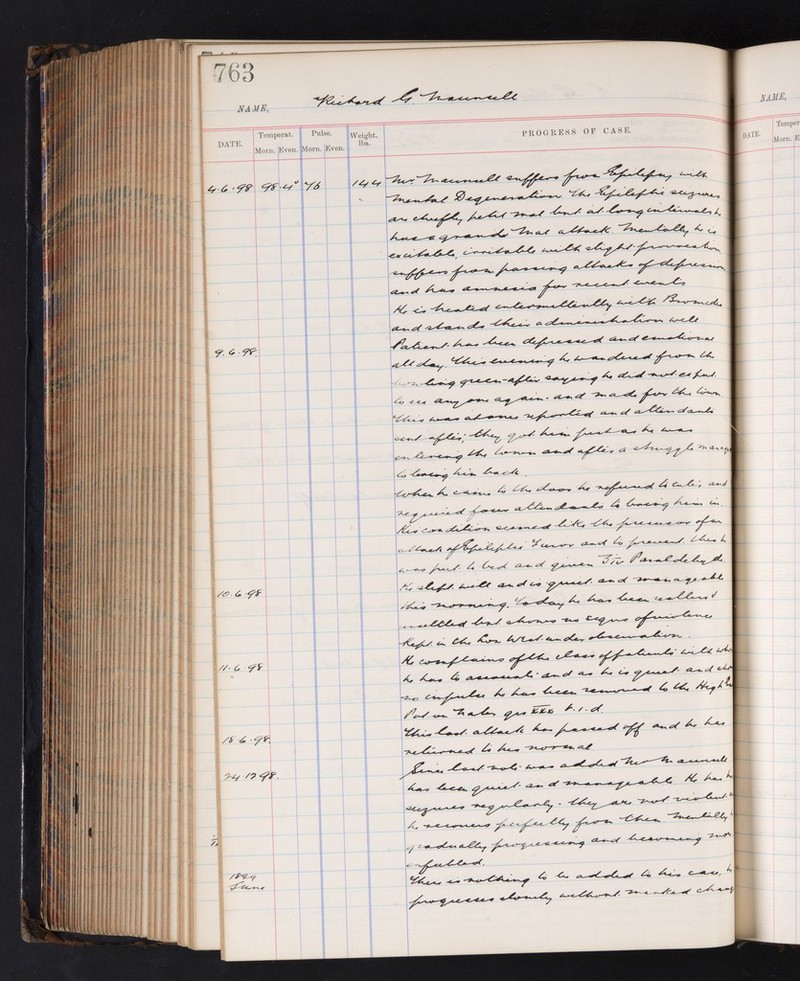 763
NAME, Richard G. Maunsell
DATE. Temperat. Morn. Even. Pulse. Morn. Even. Weight. lbs. PROGRESS OF CASE.
4.6.98 98.4° 76 144 Mr. Maunsell suffers from Epilepsy with
Mental Degeneration. The Epileptic seizures
are chiefly petit mal but at long intervals he
has a grande mal attack. Mentally he is
excitable, irritable with slight provocation
suffers from passing attacks of depression
and has amnesia for recent events
He is treated intermittently with Bromides
and stands their administration well
9.6.98. Patient has been depressed and emotional
all day. This evening he wandered from the
bowling green after saying he did not expect
to see any one again. and made for the town
This was at once reported and attendants
sent after; they got him just as he was
entering the town and after a struggle
to bring him back.
When he came to the door he refused to enter, and
required four attendants to bring him in.
His condition seemed like the precursor of an
attack of Epileptic Furor and to prevent this h
was put to bed and given ʒiv Paraldehyde.
10.6.98 He slept well and is quiet and manageable
this morning. Today he has been
unsettled but shows no signs of violence
Kept in the West under observation.
11.6.98 He complains of the class of patients with
he has to associate and as he is quiet and
no impulse he has been removed to the High
Put on grs xxx t.i.d.
18.6.98. This last attack has passed off and he has
returned to his normal
24.12.98. Since last note was added Mr Maunsell
has been quiet and manageable. He has
seizures regularly - they are not violent
he recovers perfectly from them Mentally
gradually progressing and becoming
enfeebled.
1899
June There is nothing to be added to his case, h
progresses slowly without marked
NAME,
DATE. Temper
Morn. E